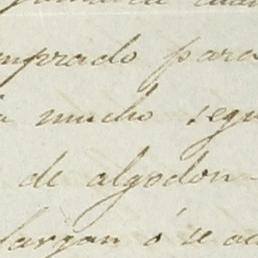 mprado para
mucho segu
de algodon
largan ó se ac